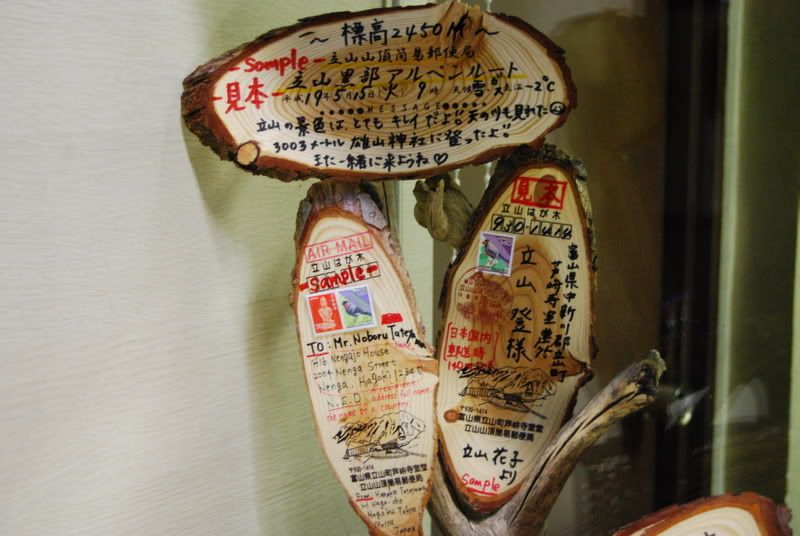 ～標高2450M～
-Sample-立山山頂簡易郵便局
-見本-立山黒部アルペンルート
平成19年5月15日(火) 9時 天候雪 気温-2℃
●●●●●MESSAGE●●●●●
立山の景色は、とてもキレイだよ!!
3003メートル 雄山神社に登ったよ!!
また一緒に来ようね♡
AIR MAIL
立山はが木
-Sample-
TO: Mr. Noboru
Hib Nengajo House
2004 Nenga Street
Nenga, Hagaki 12345
a recipient
address full name.
the name of a country.
〒930-1414
富山県立山町芦峅寺室堂
立山山頂簡易郵便局
From Hanako Tateyama
Hagaku Tokyo
Japan
見本
立山はが木
930-1414
富山県中新川郡立山町
芦峅寺室堂
立山 登様
日本国内
郵送時
140
〒930-1414
富山県立山町芦峅寺室堂
立山山頂簡易郵便局
立山花子
より
Sample